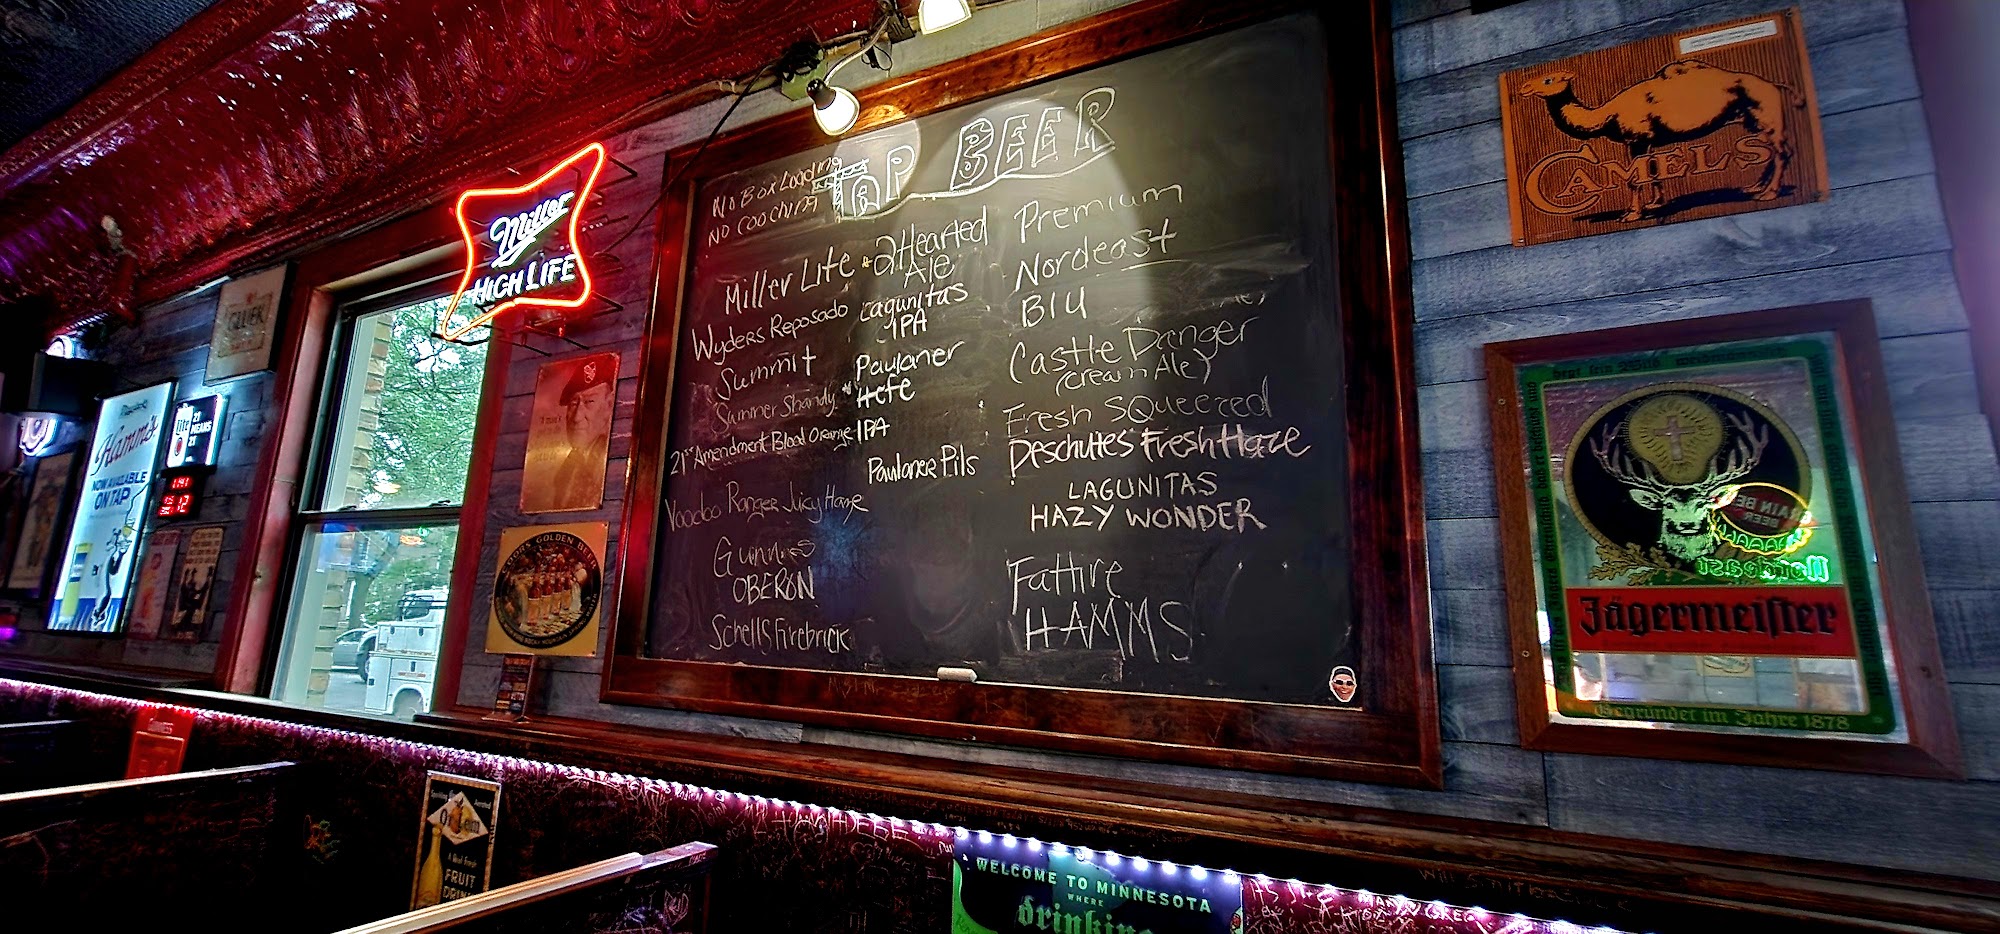 TAP BEER
No Box Loading
No Coochina
Miller Lite
Wyders Reposado
Summit
Summer Shandy
21st Amendment Blood Orange IPA
Voodoo Ranger Juicy Haze
Guinnes
OBERON
Schells Firebrick
2Hearted
Ale
Lagunitas
IPA
Paulaner
Hefe
Paulaner Pils
Premium
Nordeast
Blu
Castle Danger
(cream Ale)
Fresh SQueezed
Deschutes Fresh Haze
LAGUNITAS
HAZY WONDER
Fattire
HAMMS
Miller
HIGH LIFE
Hamm's
NOW AVAILABLE
ON TAP
Lite
CAMELS
Jägermeister
Gegründet im Jahre 1878
Nordeast
COORS GOLDEN BEER
A Real Fresh
FRUIT
DRINK
WELCOME TO MINNESOTA
WHERE
drinking